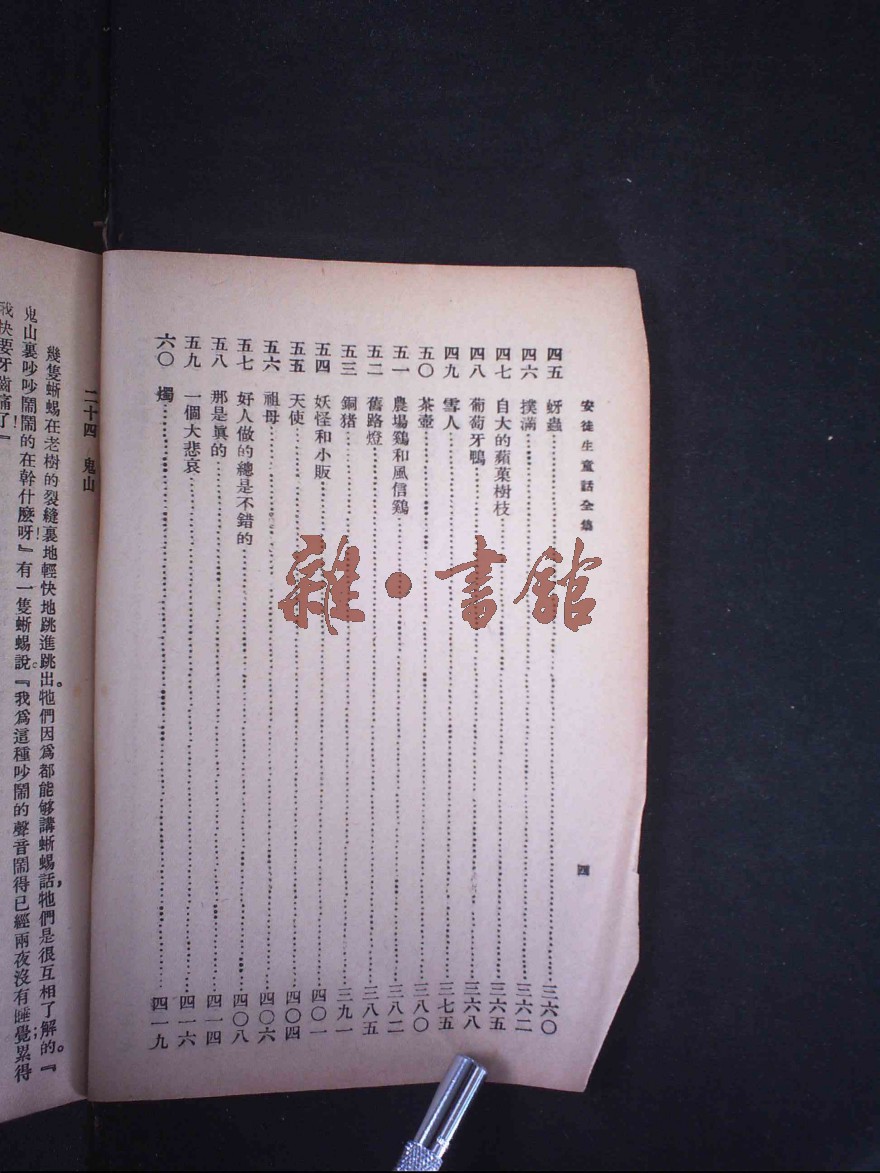 安徒生童話全集
四
四五 蚜蟲 三六〇
四六 撲滿 三六二
四七 自大的蘋菓樹枝 三六五
四八 葡萄牙鴨 三六八
四九 雪人 三七五
五〇 茶壺 三八〇
五一 農場鷄和風信鷄 三八二
五二 舊路燈 三八五
五三 銅猪 三九一
五四 妖怪和小販 四〇一
五五 天使 四〇四
五六 祖母 四〇六
五七 好人做的總是不錯的 四〇八
五八 那是眞的 四一四
五九 一個大悲哀 四一六
六〇 燭 四一九
雜·書舘
二十四 鬼山
幾隻蜥蜴在老樹的裂縫裏地輕快地跳進跳出。牠們因爲都能够講蜥蜴話,牠們是很互相了解的。『
鬼山裏吵吵鬧鬧的在幹什麽呀!』有一隻蜥蜴說。『我爲這種吵鬧的聲音鬧得已經兩夜沒有睡覺;累得
我快要牙齒痛了!』